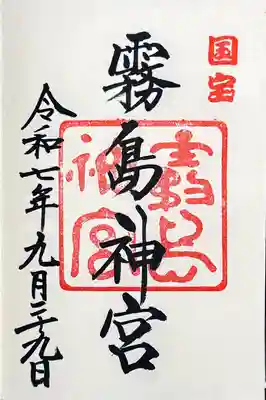 国宝
霧島神宮
霧島神宮
令和七年九月二十九日